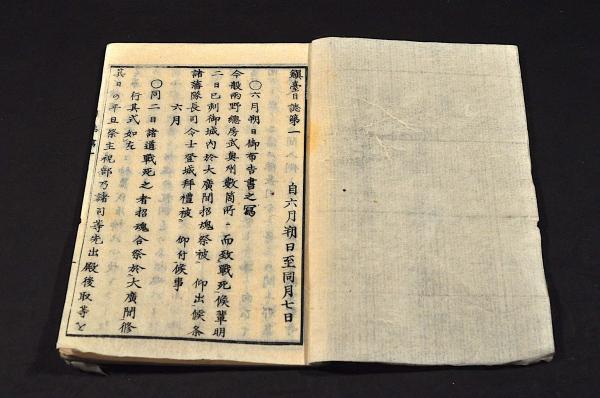 鎭臺日誌第一
自六月朔日至同月七日
○六月朔日御布告書之寫
今般兩野總房武奥州數箇所ニ而致戰死候輩明
二日巳刻御城内於大廣間招魂祭被 仰出候条
諸藩隊長司令士登城拜禮被 仰付候事
六月
○同二日諸道戰死之者招魂合祭於大廣間修
行其式如左
其日の早旦祭主祝部乃諸司等先出殿後取等と